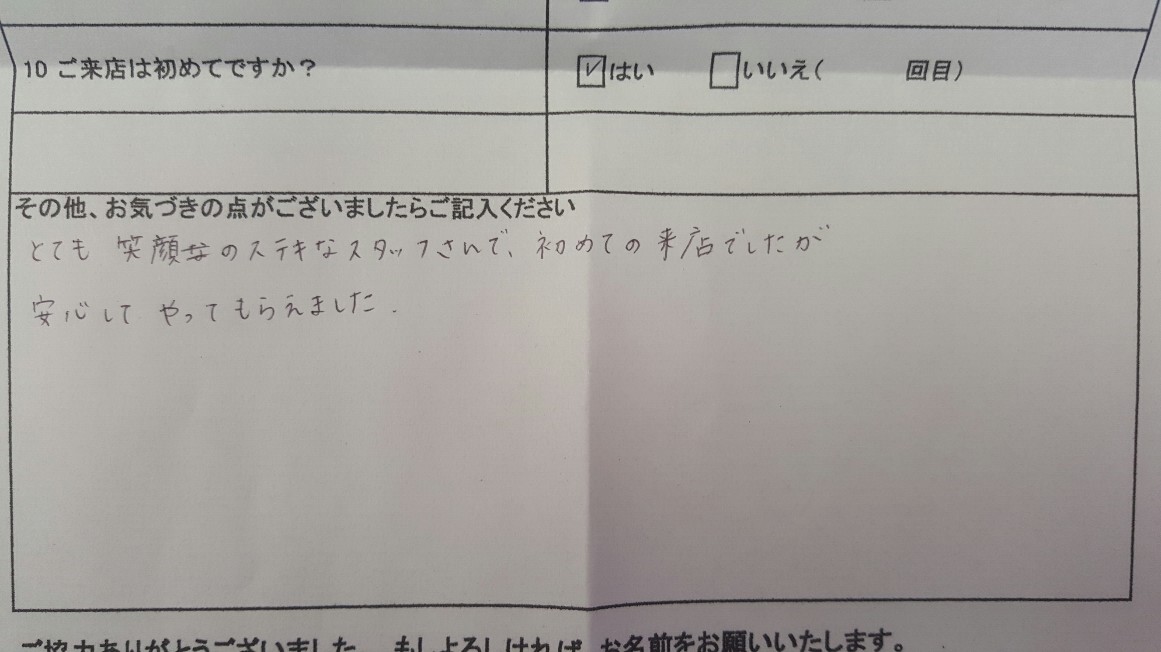 10 ご来店は初めてですか？
☑はい □いいえ( 回目)
その他、お気づきの点がございましたらご記入ください
とても 笑顔なのステキなスタッフさんで、初めての来店でしたが
安心して やってもらえました.
ご協力ありがとうございました。 もしよろしければ、お名前をお願いいたします。